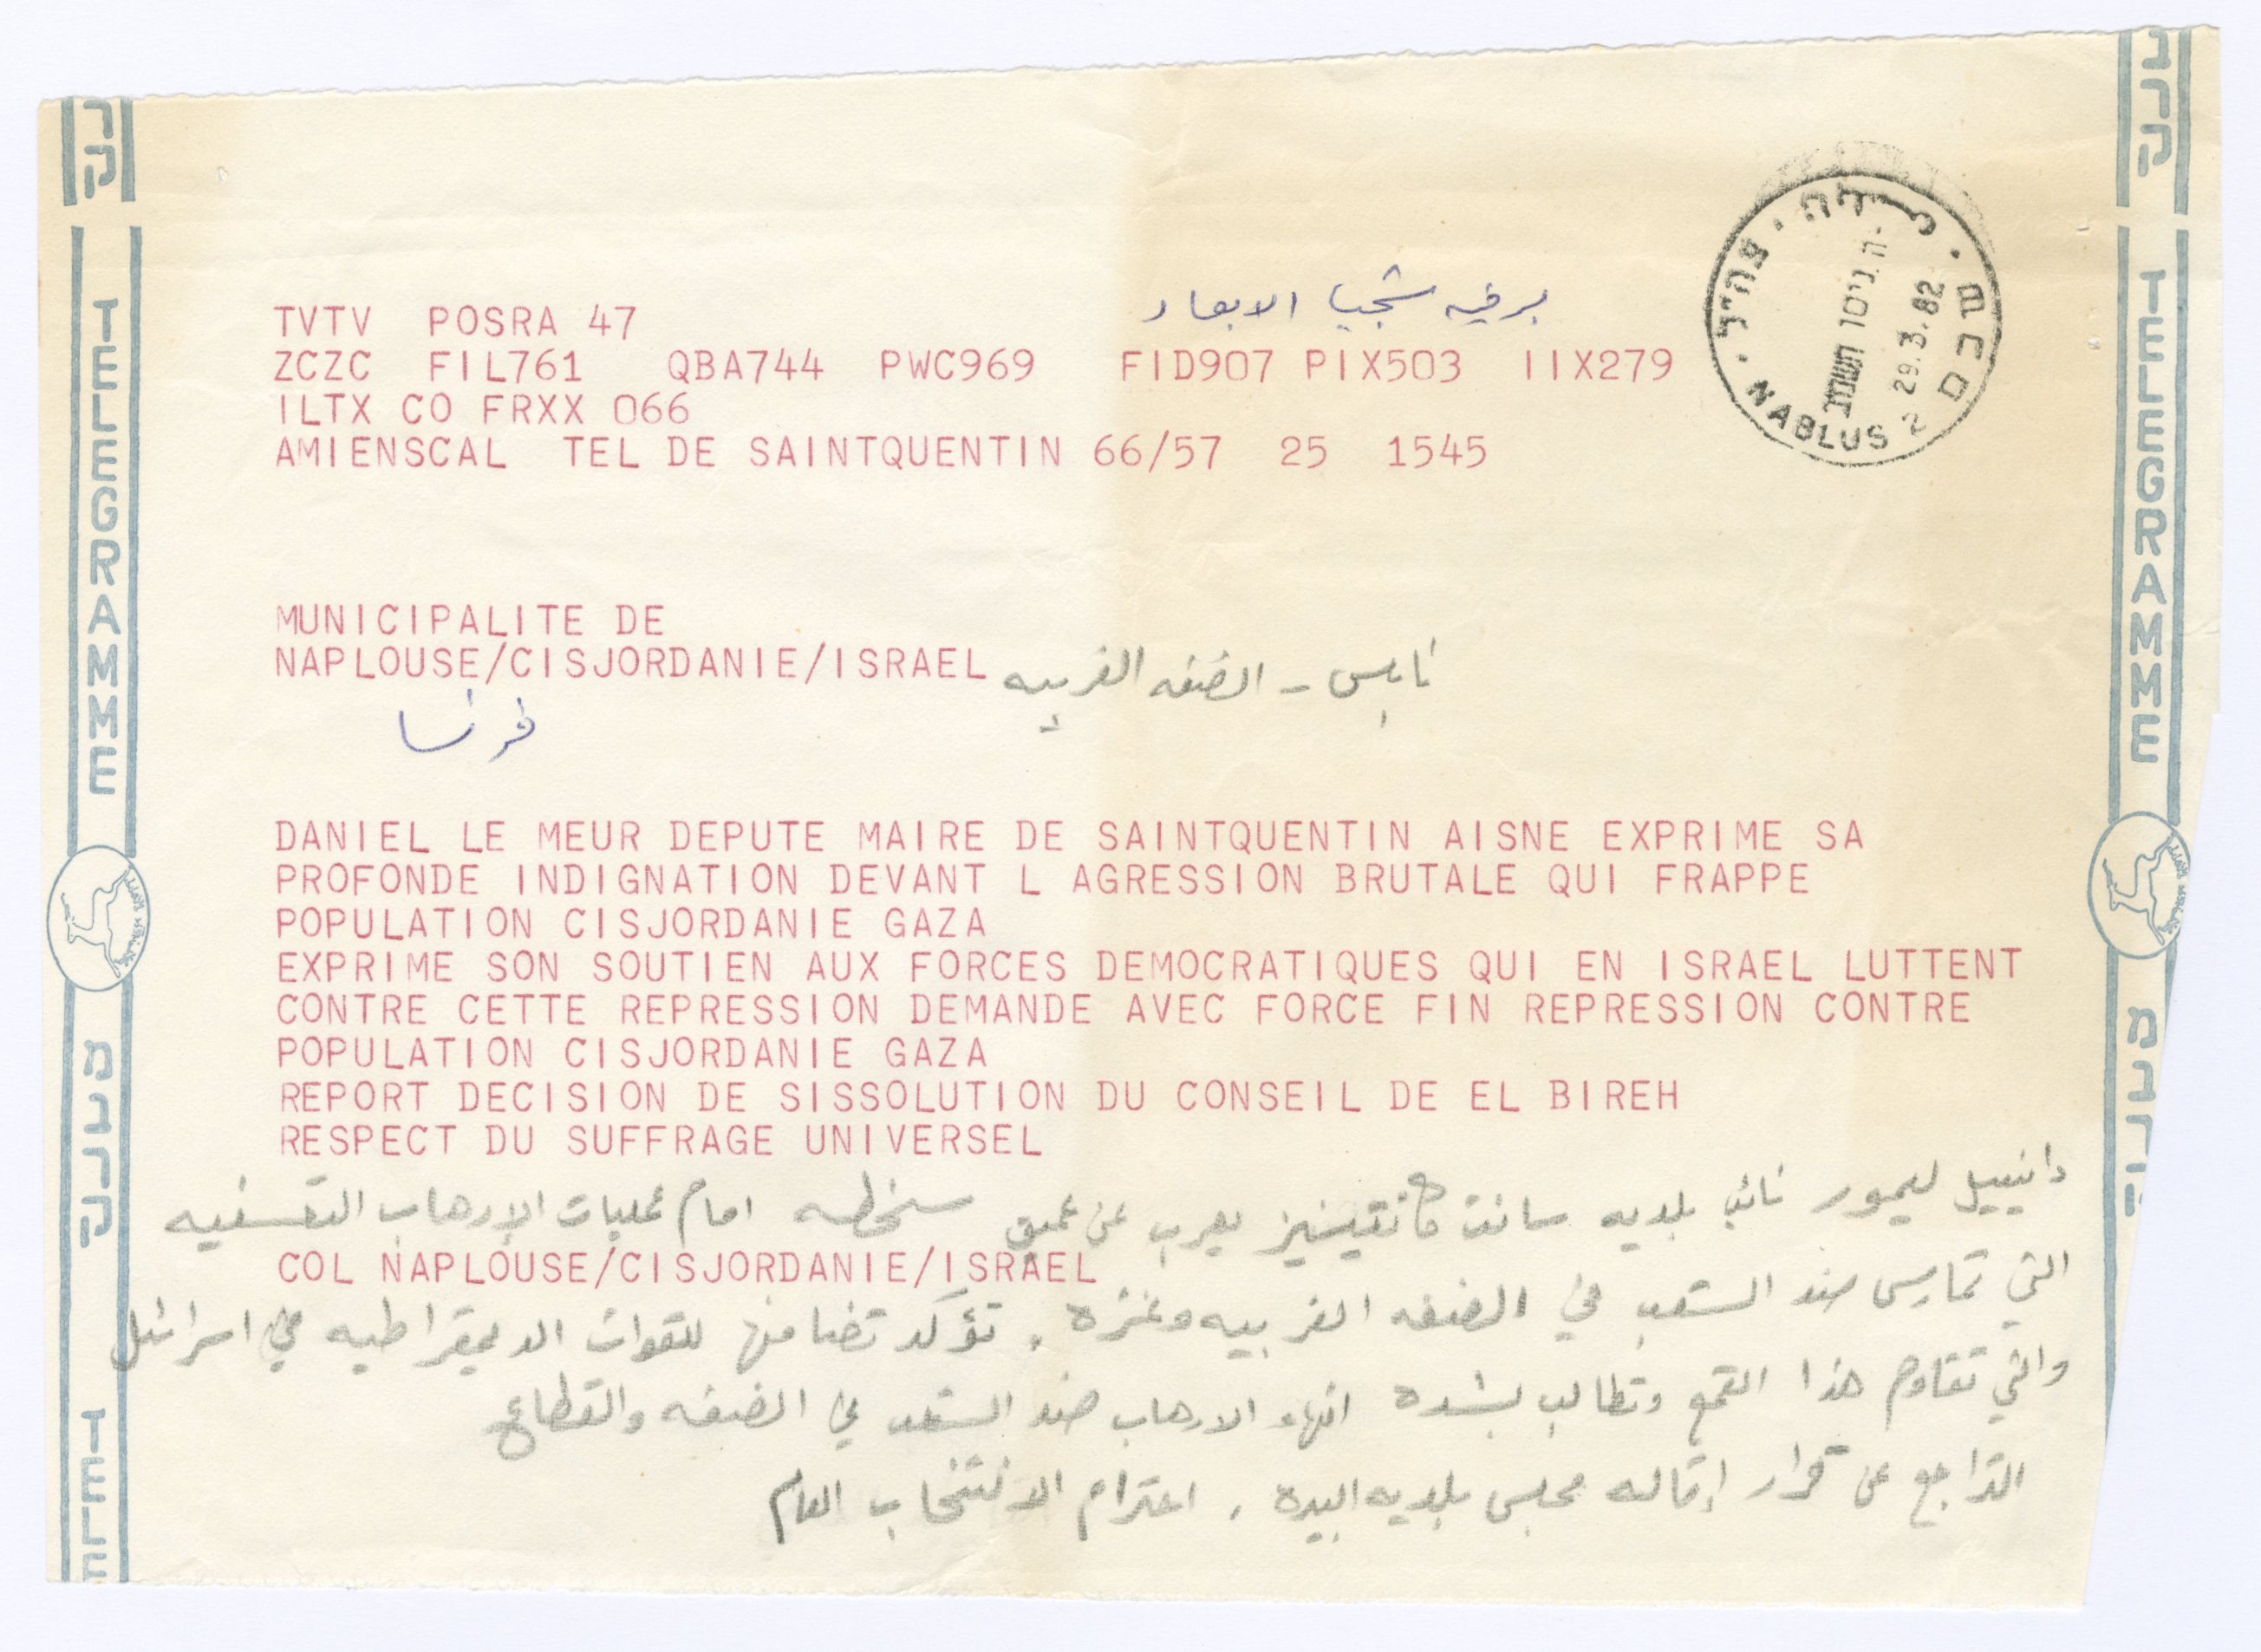 TVTV POSRA 47
برقيه شجب الابعاد
ZCZC FIL761 QBA744 PWC969 FID907 PIX503 IIX279
ILTX CO FRXX 066
AMIENSCAL TEL DE SAINTQUENTIN 66/57 25 1545
צה"ל
שכם
NABLUS 2
ה.ניסן תשמב
29.3.82
MUNICIPALITE DE
NAPLOUSE/CISJORDANIE/ISRAEL نابلس - الضفه الغربيه
فرنسا
DANIEL LE MEUR DEPUTE MAIRE DE SAINTQUENTIN AISNE EXPRIME SA
PROFONDE INDIGNATION DEVANT L AGRESSION BRUTALE QUI FRAPPE
POPULATION CISJORDANIE GAZA
EXPRIME SON SOUTIEN AUX FORCES DEMOCRATIQUES QUI EN ISRAEL LUTTENT
CONTRE CETTE REPRESSION DEMANDE AVEC FORCE FIN REPRESSION CONTRE
POPULATION CISJORDANIE GAZA
REPORT DECISION DE SISSOLUTION DU CONSEIL DE EL BIREH
RESPECT DU SUFFRAGE UNIVERSEL
دانييل ليمور نائب بلديه سانت كانتينيز يعرب عن عميق سخطه امام عمليات الإرهاب التعسفيه
COL NAPLOUSE/CISJORDANIE/ISRAEL
التي تمارس ضد الشعب في الضفه الغربيه وغزه . تؤكد تضامنها للقوات الديمقراطيه في اسرائيل
والتي تقاوم هذا القمع وتطالب بشده انهاء الارهاب ضد الشعب في الضفه والقطاع
التراجع عن قرار إقاله مجلس بلديه البيره . احترام الانتخاب العام
TELEGRAMME
מברק
TELE
TELEGRAMME
מברק